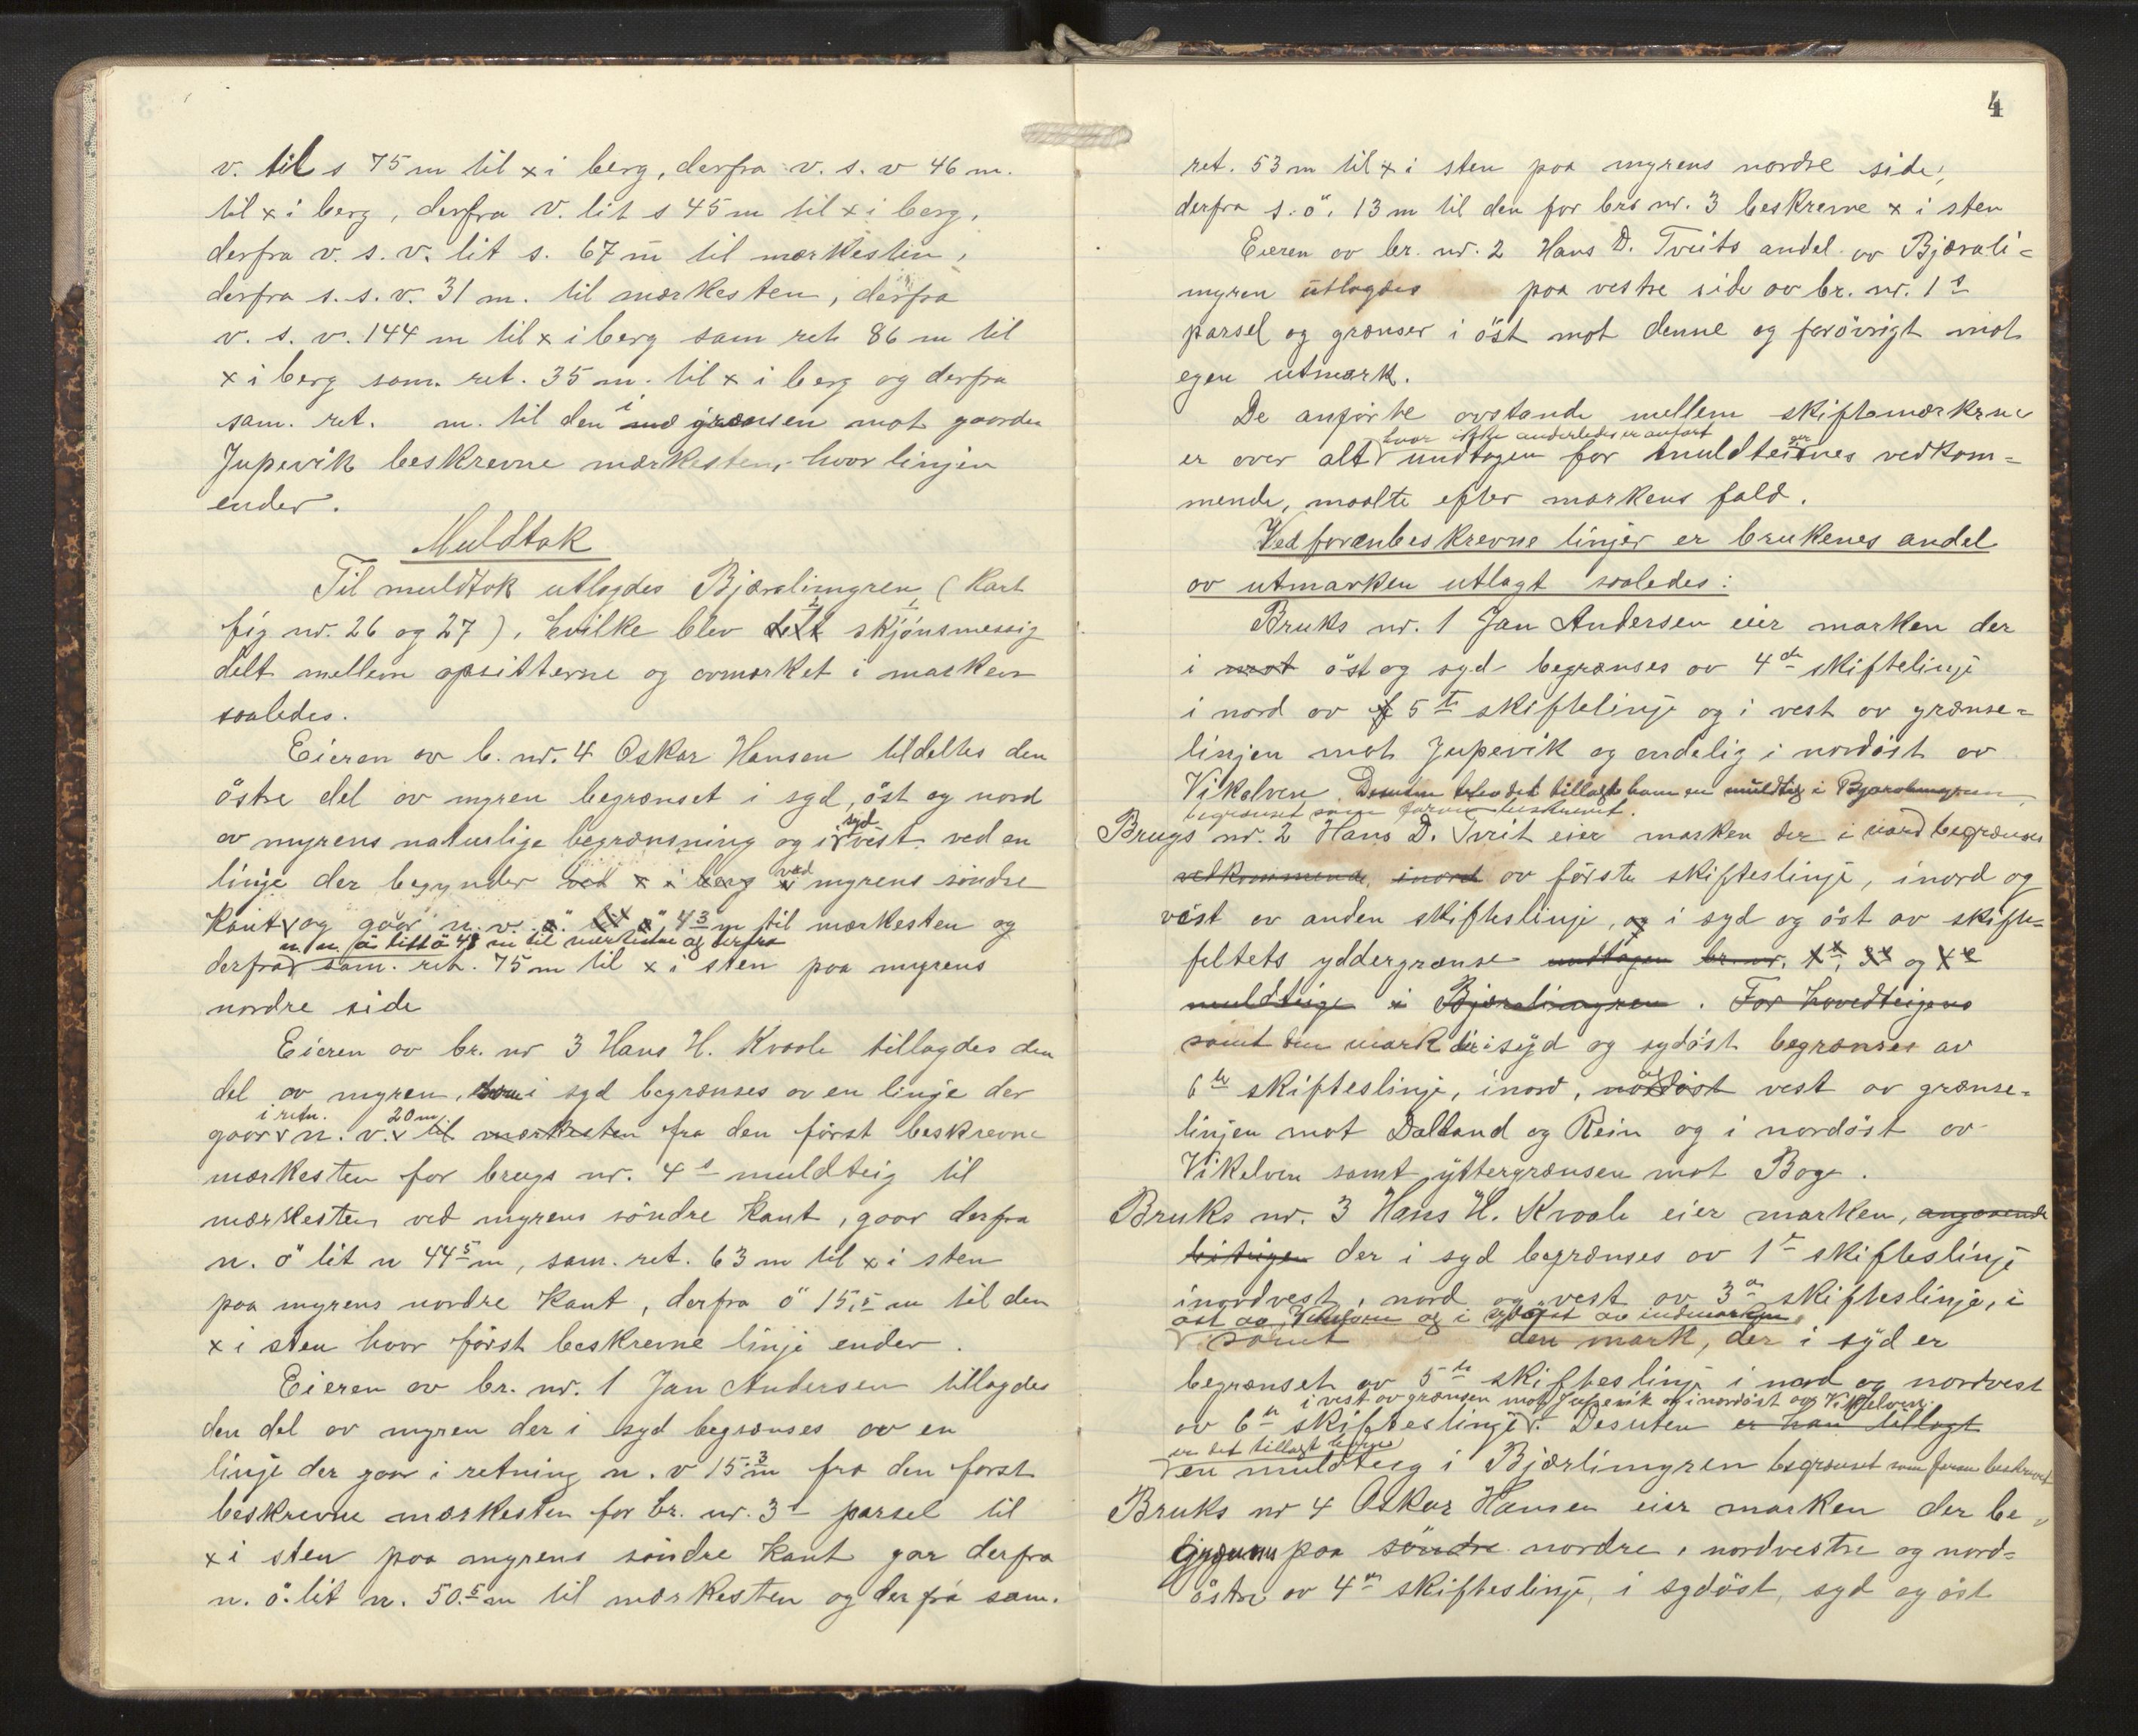 v. til s 75 m til x i berg, derfra v. s. v 46 m.
til x i berg, derfra v. lit s 45 m til x i berg,
derfra v. s. v. lit s. 67 m til merkesten,
derfra s. s. v. 31 m. til merkesten, derfra
v. s. v. 144 m til x i berg sam ret. 86 m til
x i berg sam. ret. 35 m. til x i berg og derfra
sam. ret. m. til den i grænsen mot gaarden
Jupevik beskrevne merkesten, hvor linjen
ender.
Muldtak
Til muldtak utlagdes Bjæralimyren (kart
fig nr. 26 og 27), hvilke blev delt skjönsmessig
delt mellem opsitterne og avmerket i marken
saaledes.
Eieren av b. nr. 4 Oskar Hansen tildeltes den
östre del av myren begrænset i syd, öst og nord
syd
av myrens naturlige begrænsning og i vest ved en
ved
linje der begynder ved x i berg i myrens söndre
kant og gaar n. v. ö lit ö 4 3 m til merkesten og
n. n. ö litt ö 48 m til merkesten og derfra
derfra sam. ret. 75 m til x i sten paa myrens
nordre side
Eieren av br. nr 3 Hans H. Kvaale tillagdes den
del av myren, som i syd begrænses av en linje der
i retn. 20 m
gaar n. v. til merkesten fra den först beskrevne
merkesten for brugs nr. 4 s muldteig til
merkesten ved myrens söndre kant, gaar derfra
n. ö lit n 44 5 m, sam. ret. 63 m til x i sten
paa myrens nordre kant, derfra ö 15,5 m til den
x i sten hvor först beskrevne linje ender.
Eieren av br. nr. 1 Jan Andersen tillagdes
den del av myren der i syd begrænses av en
linje der gaar i retning n. v 15.3 m fra den först
beskrevne merkesten for br. nr. 3 s parsel til
x i sten paa myrens söndre kant gar derfra
n. ö. lit n. 50.5 m til merkesten og derfra sam.
4
ret. 53 m til x i sten paa myrens nordre side,
derfra s. ö. 13 m til den for brs nr. 3 beskrevne x i sten
Eieren av br. nr. 2 Hans D. Tveits andel av Bjærali=
myren utlagdes paa vestre side av br. nr. 1 s
parsel og grænser i öst mot denne og forövrigt mot
egen utmark.
De anförte avstande mellem skiftemerkene
hvor ikke anderledes er anfört
er over alt undtagen for muldteigenes vedkom=
mende, maalte efter markens fald.
Ved foranbeskrevne linjer er brukenes andel
av utmarken utlagt saaledes:
Bruks nr. 1 Jan Andersen eier marken der
i mot öst og syd begrænses av 4 de skiftelinje
i nord av 5 te skiftelinje og i vest av grænse=
linjen mot Jupevik og endelig i nordöst av
Vikelven. Desuten blev det tillagt ham en muldteig i Bjæralimyren,
begrænset som foran beskrevet.
Brugs nr. 2 Hans D. Tveit eier marken der i nord begrænses
vedkommende, inord av förste skifteslinje, i nord og
vest av anden skifteslinje, og i syd og öst av skifte=
feltets yddergrænse undtagen br. nr. 1 s, 3 s og 4 s
muldteige i Bjæralimyren. For hovedteigens
samt den mark der i syd og sydöst begrænses av
6 te skifteslinje, i nord, nordöst og vest av grænse=
linjen mot Dalland og Rein og i nordöst av
Vikelven samt yttergrænsen mot Boga.
Bruks nr. 3 Hans H. Kvaale eier marken, angaaende
beiteigen der i syd begrænses av 1 ste skifteslinje
i nordvest, nord og vest av 3 die skifteslinje, i
öst av Vikelven og i sydöst av indmarken,
samt den mark, der i syd er
begrænset av 5 te skifteslinje i nord og nordvest
i vest av grænsen mot Jupevik og i nordöst av Vikelven.
av 6 te skifteslinje. Desuten er han tillagt
er det tillagt ham
en muldteig i Bjærlimyren begrænset som foran beskrevet
Bruks nr 4 Oskar Hansen eier marken der be=
grænses paa söndre nordre, nordvestre og nord=
östre av 4 de skifteslinje, i sydöst, syd og öst